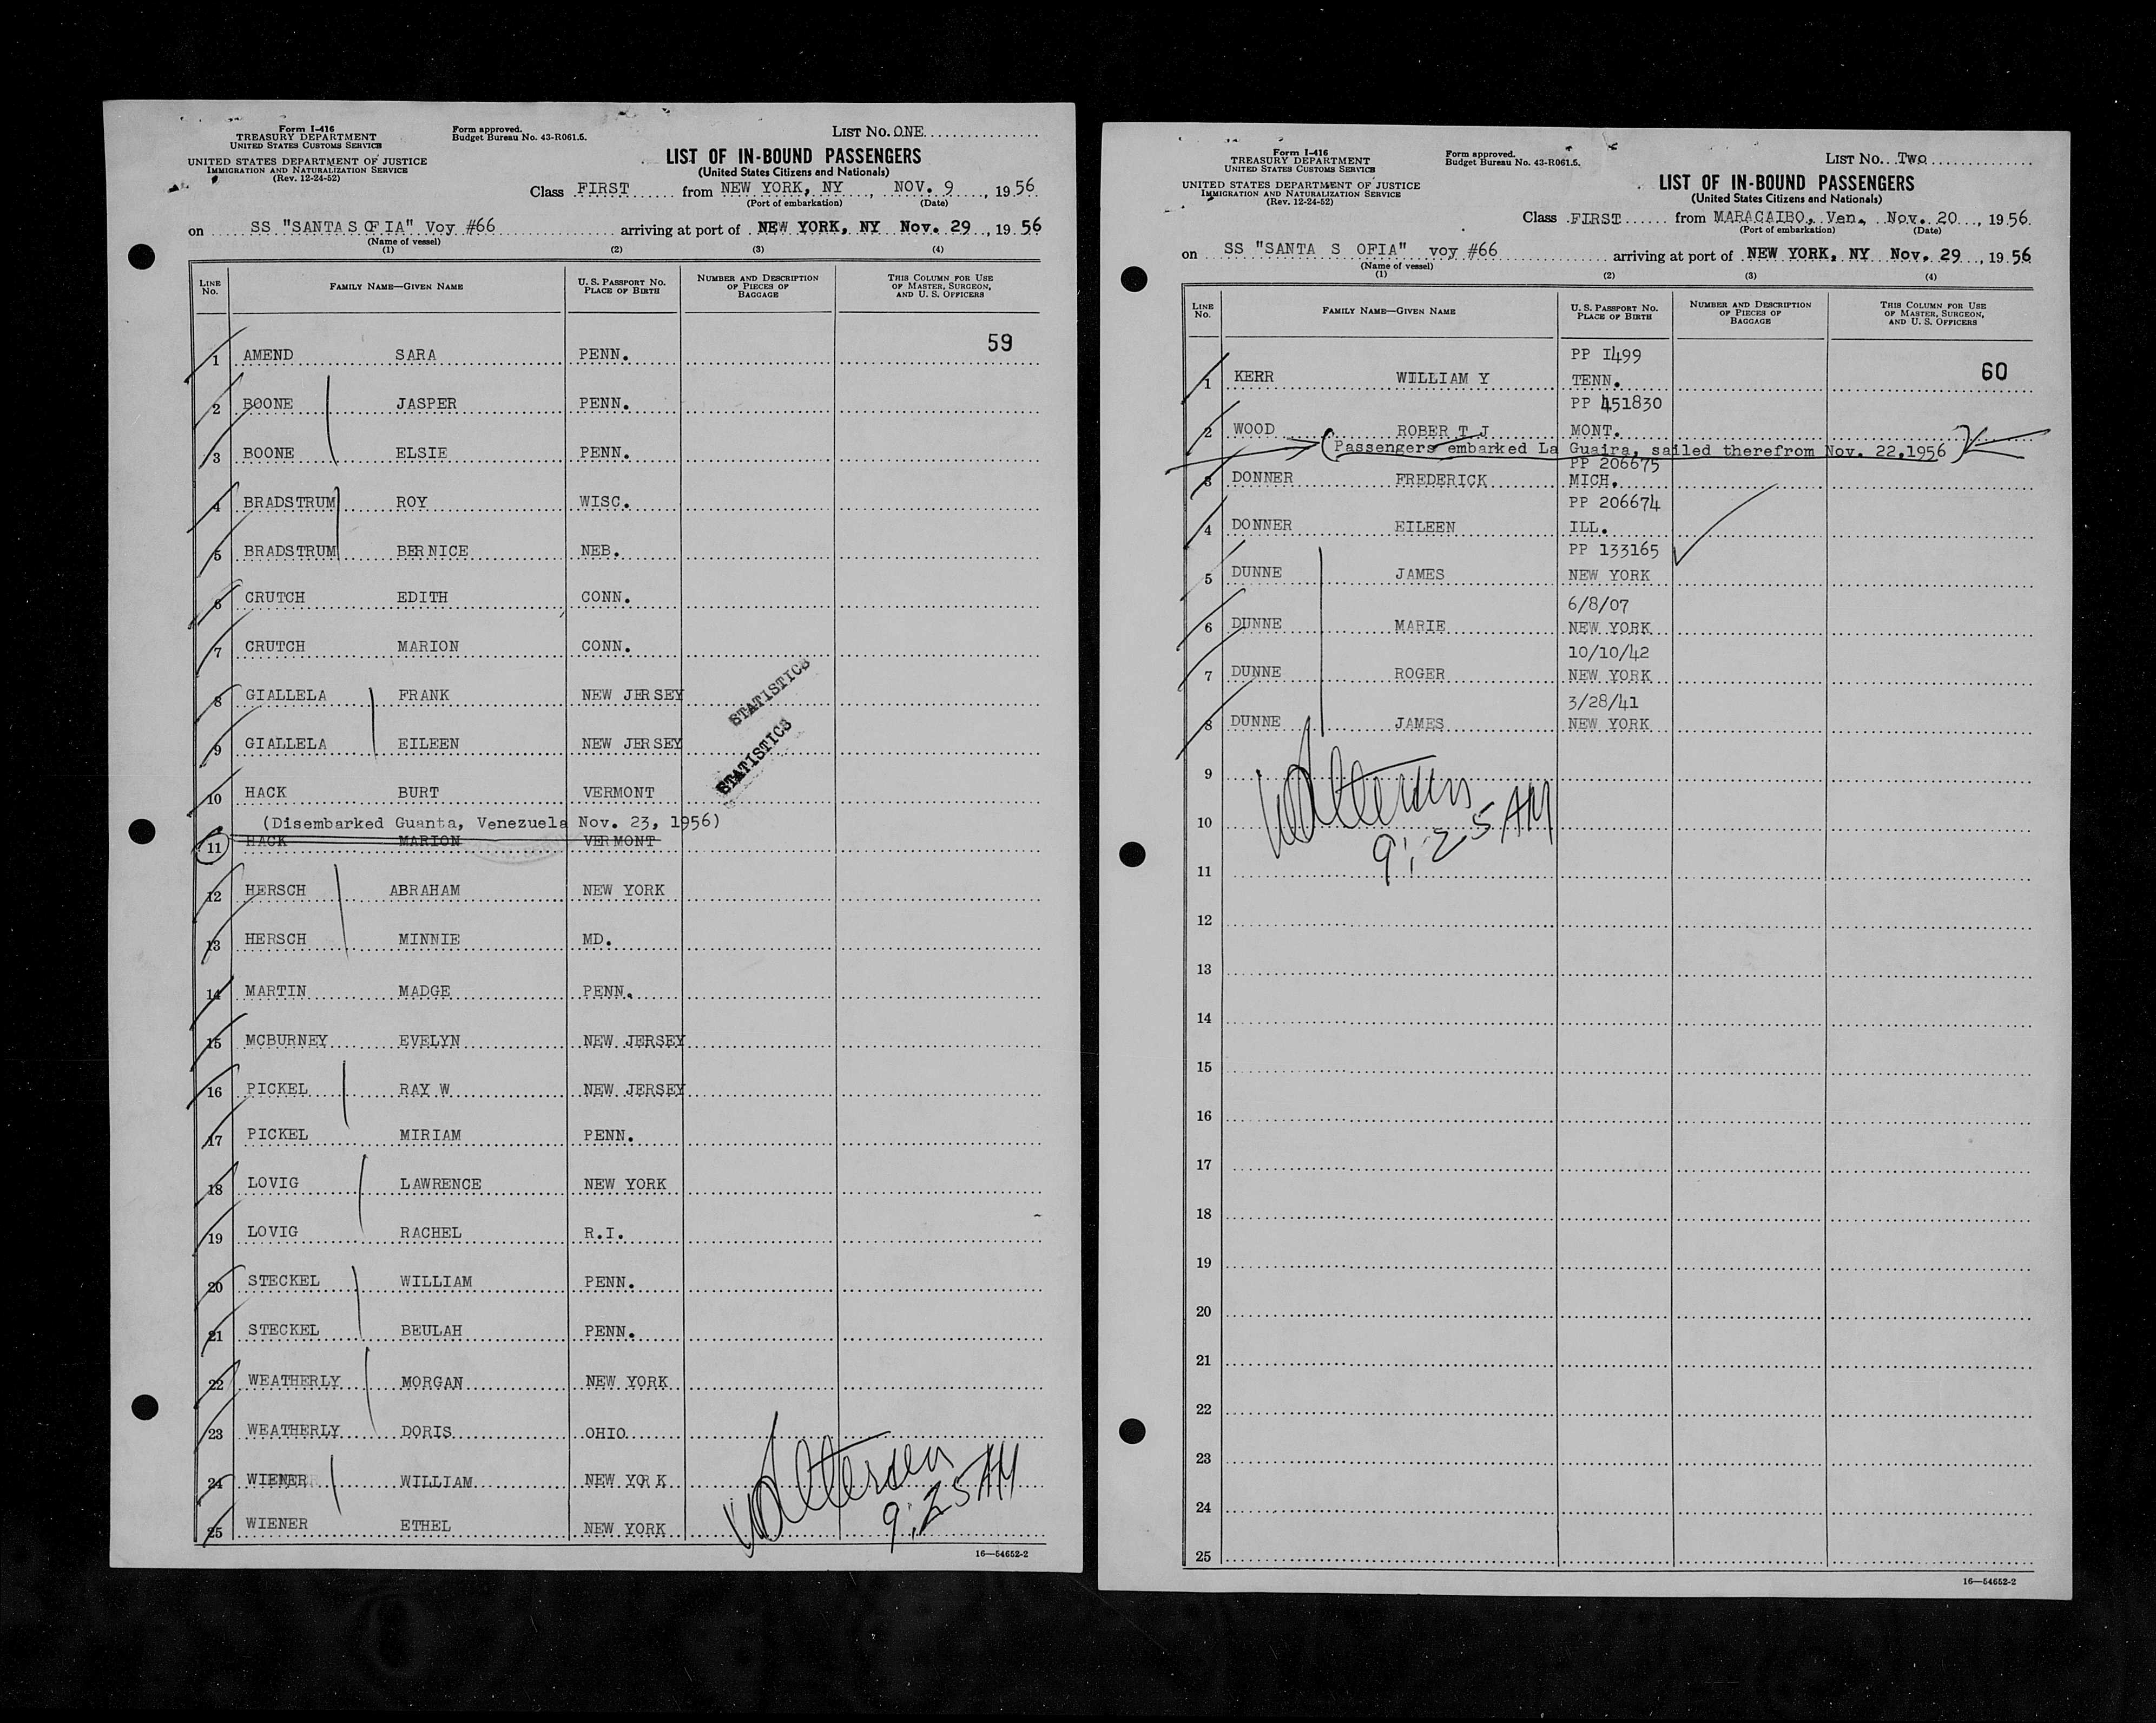 Form I-416
TREASURY DEPARTMENT
UNITED STATES CUSTOMS SERVICE
UNITED STATES DEPARTMENT OF JUSTICE
IMMIGRATION AND NATURALIZATION SERVICE
(Rev. 12-24-52)
Form approved.
Budget Bureau No. 43-R061.5.
LIST No. ONE
LIST OF IN-BOUND PASSENGERS
(United States Citizens and Nationals)
Class FIRST from NEW YORK, NY, NOV. 9, 1956
(Port of embarkation) (Date)
on SS "SANTA SOFIA" Voy #66 arriving at port of NEW YORK, NY Nov. 29, 1956
(Name of vessel)
(1) (2) (3) (4)
LINE No. FAMILY NAME—GIVEN NAME U. S. PASSPORT No. PLACE OF BIRTH NUMBER AND DESCRIPTION OF PIECES OF BAGGAGE THIS COLUMN FOR USE OF MASTER, SURGEON, AND U. S. OFFICERS
59
1 AMEND SARA PENN.
2 BOONE JASPER PENN.
3 BOONE ELSIE PENN.
4 BRADSTRUM ROY WISC.
5 BRADSTRUM BERNICE NEB.
6 CRUTCH EDITH CONN.
7 CRUTCH MARION CONN.
8 GIALLELA FRANK NEW JERSEY
STATISTICS
9 GIALLELA EILEEN NEW JERSEY
STATISTICS
10 HACK BURT VERMONT
(Disembarked Guanta, Venezuela Nov. 23, 1956)
11 HACK MARION VERMONT
12 HERSCH ABRAHAM NEW YORK
13 HERSCH MINNIE MD.
14 MARTIN MADGE PENN.
15 MCBURNEY EVELYN NEW JERSEY
16 PICKEL RAY W NEW JERSEY
17 PICKEL MIRIAM PENN.
18 LOVIG LAWRENCE NEW YORK
19 LOVIG RACHEL R.I.
20 STECKEL WILLIAM PENN.
21 STECKEL BEULAH PENN.
22 WEATHERLY MORGAN NEW YORK
23 WEATHERLY DORIS OHIO
24 WIENER WILLIAM NEW YORK
25 WIENER ETHEL NEW YORK
9:25 AM
16—54652-2
Form I-416
TREASURY DEPARTMENT
UNITED STATES CUSTOMS SERVICE
UNITED STATES DEPARTMENT OF JUSTICE
IMMIGRATION AND NATURALIZATION SERVICE
(Rev. 12-24-52)
Form approved.
Budget Bureau No. 43-R061.5.
LIST No. Two
LIST OF IN-BOUND PASSENGERS
(United States Citizens and Nationals)
Class FIRST from MARACAIBO, Ven, Nov. 20, 1956
(Port of embarkation) (Date)
on SS "SANTA S OFIA" voy #66 arriving at port of NEW YORK, NY Nov. 29, 1956
(Name of vessel)
(1) (2) (3) (4)
LINE No. FAMILY NAME—GIVEN NAME U. S. PASSPORT No. PLACE OF BIRTH NUMBER AND DESCRIPTION OF PIECES OF BAGGAGE THIS COLUMN FOR USE OF MASTER, SURGEON, AND U. S. OFFICERS
PP 1499
60
1 KERR WILLIAM Y TENN.
PP 451830
2 WOOD ROBER T J MONT.
(Passengers embarked La Guaira, sailed therefrom Nov. 22,1956)
PP 206675
3 DONNER FREDERICK MICH.
PP 206674
4 DONNER EILEEN ILL.
PP 133165
5 DUNNE JAMES NEW YORK
6/8/07
6 DUNNE MARIE NEW YORK
10/10/42
7 DUNNE ROGER NEW YORK
3/28/41
8 DUNNE JAMES NEW YORK
9
10
9:25 AM
11
12
13
14
15
16
17
18
19
20
21
22
23
24
25
16—54652-2